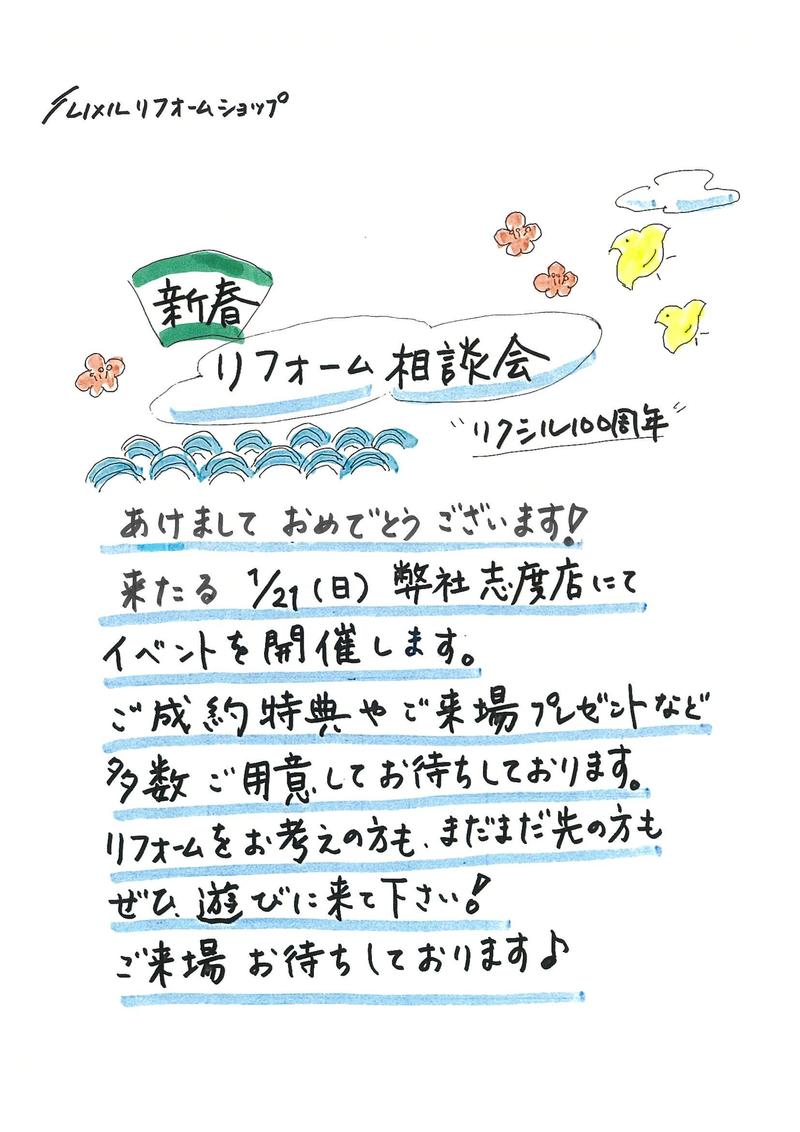 LIXILリフォームショップ
新春
リフォーム相談会
"リクシル100周年"
あけまして おめでとう ございます!
来たる 1/21(日) 弊社 志度店にて
イベントを開催します。
ご成約特典やご来場プレゼントなど
多数ご用意してお待ちしております。
リフォームをお考えの方も、まだまだ先の方も
ぜひ、遊びに来て下さい!
ご来場 お待ちしております♪